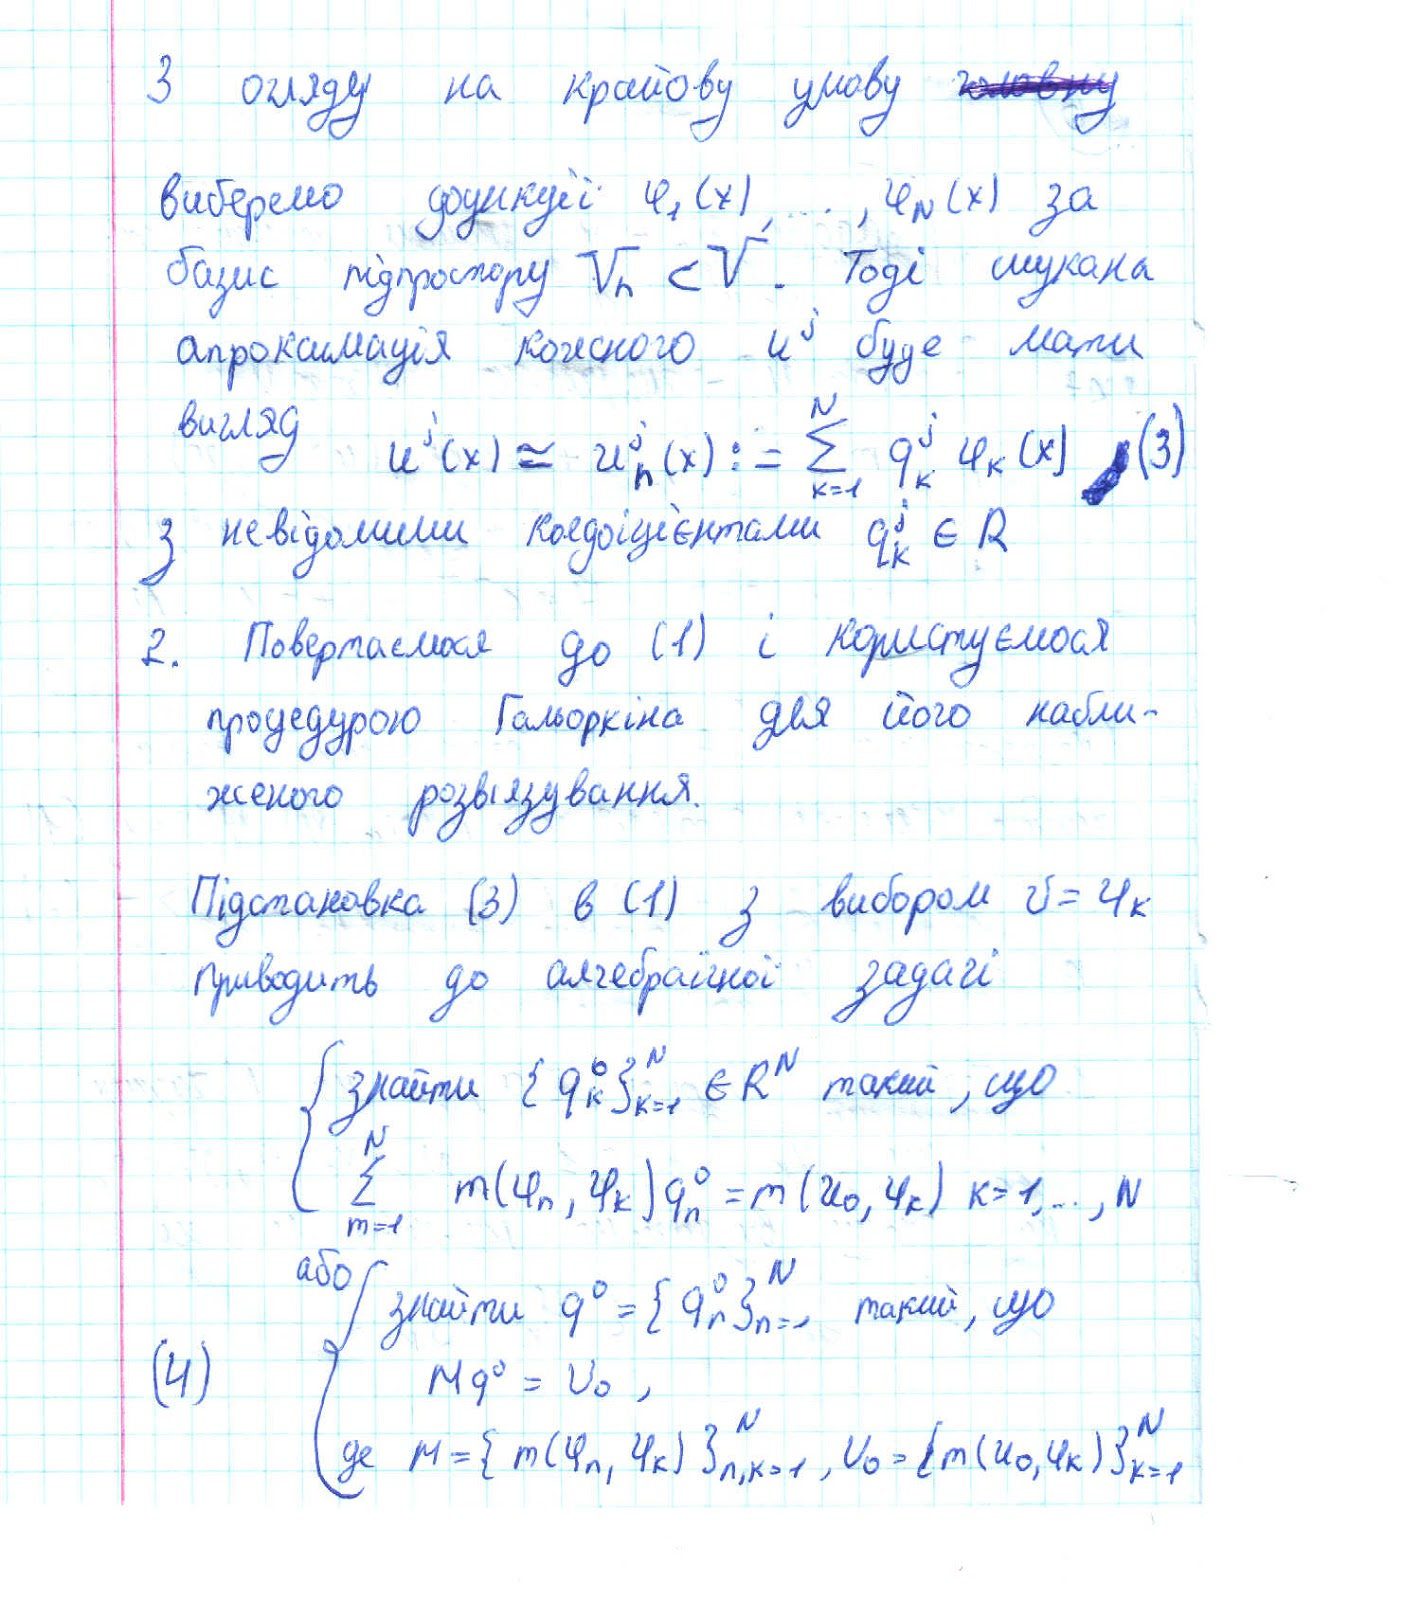 З огляду на крайову умову головну
виберемо функції φ₁(x), ..., φ_N(x) за
базис підпростору V_h ⊂ V. Тоді шукана
апроксимація кожного u^j буде мати
вигляд u^j(x) ≃ u_h^j(x) := ∑_{k=1}^{N} q_k^j φ_k(x), (3)
з невідомими коефіцієнтами q_k^j ∈ R
2. Повертаємося до (1) і користуємося
процедурою Гальоркіна для його набли-
женого розв'язування.
Підстановка (3) в (1) з вибором v = φ_k
приводить до алгебраїчної задачі
{ знайти {q_k^0}_{k=1}^N ∈ R^N такий, що
∑_{m=1}^{N} m(φ_n, φ_k) q_n^0 = m(u_0, φ_k) k=1,...,N
або { знайти q^0 = {q_n^0}_{n=1}^N такий, що
(4) M q^0 = U_0,
де M = {m(φ_n, φ_k)}_{n,k=1}^N, U_0 = {m(u_0, φ_k)}_{k=1}^N